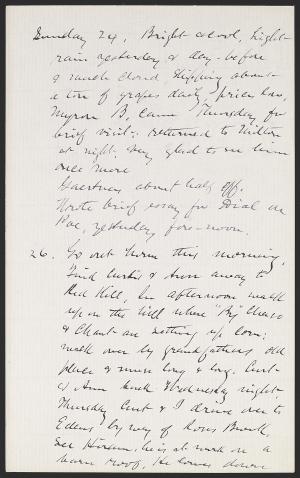 Sunday 24, Bright & cool, light
rain yesterday & day before
Shipping about
a ton of grapes daily, prices low,
Myron B. came Thursday for
brief visit; returned to Milton
at night. Very glad to see him
once more
about half off.
Wrote brief essay for Dial on
Poe, yesterday fore-noon.
26. Go out home this morning,
Find Curtis & Ann away to
Red Hill, In afternoon walk
up on the hill where "By" Chase
& Chant are setting up corn;
walk over by grandfathers old
place & muse long & long. Curt
& Ann back Wednesday night.
Thursday Curt & I drive over to
Edens by way of
See Hiram, he is at work on a
barn roof, He comes down